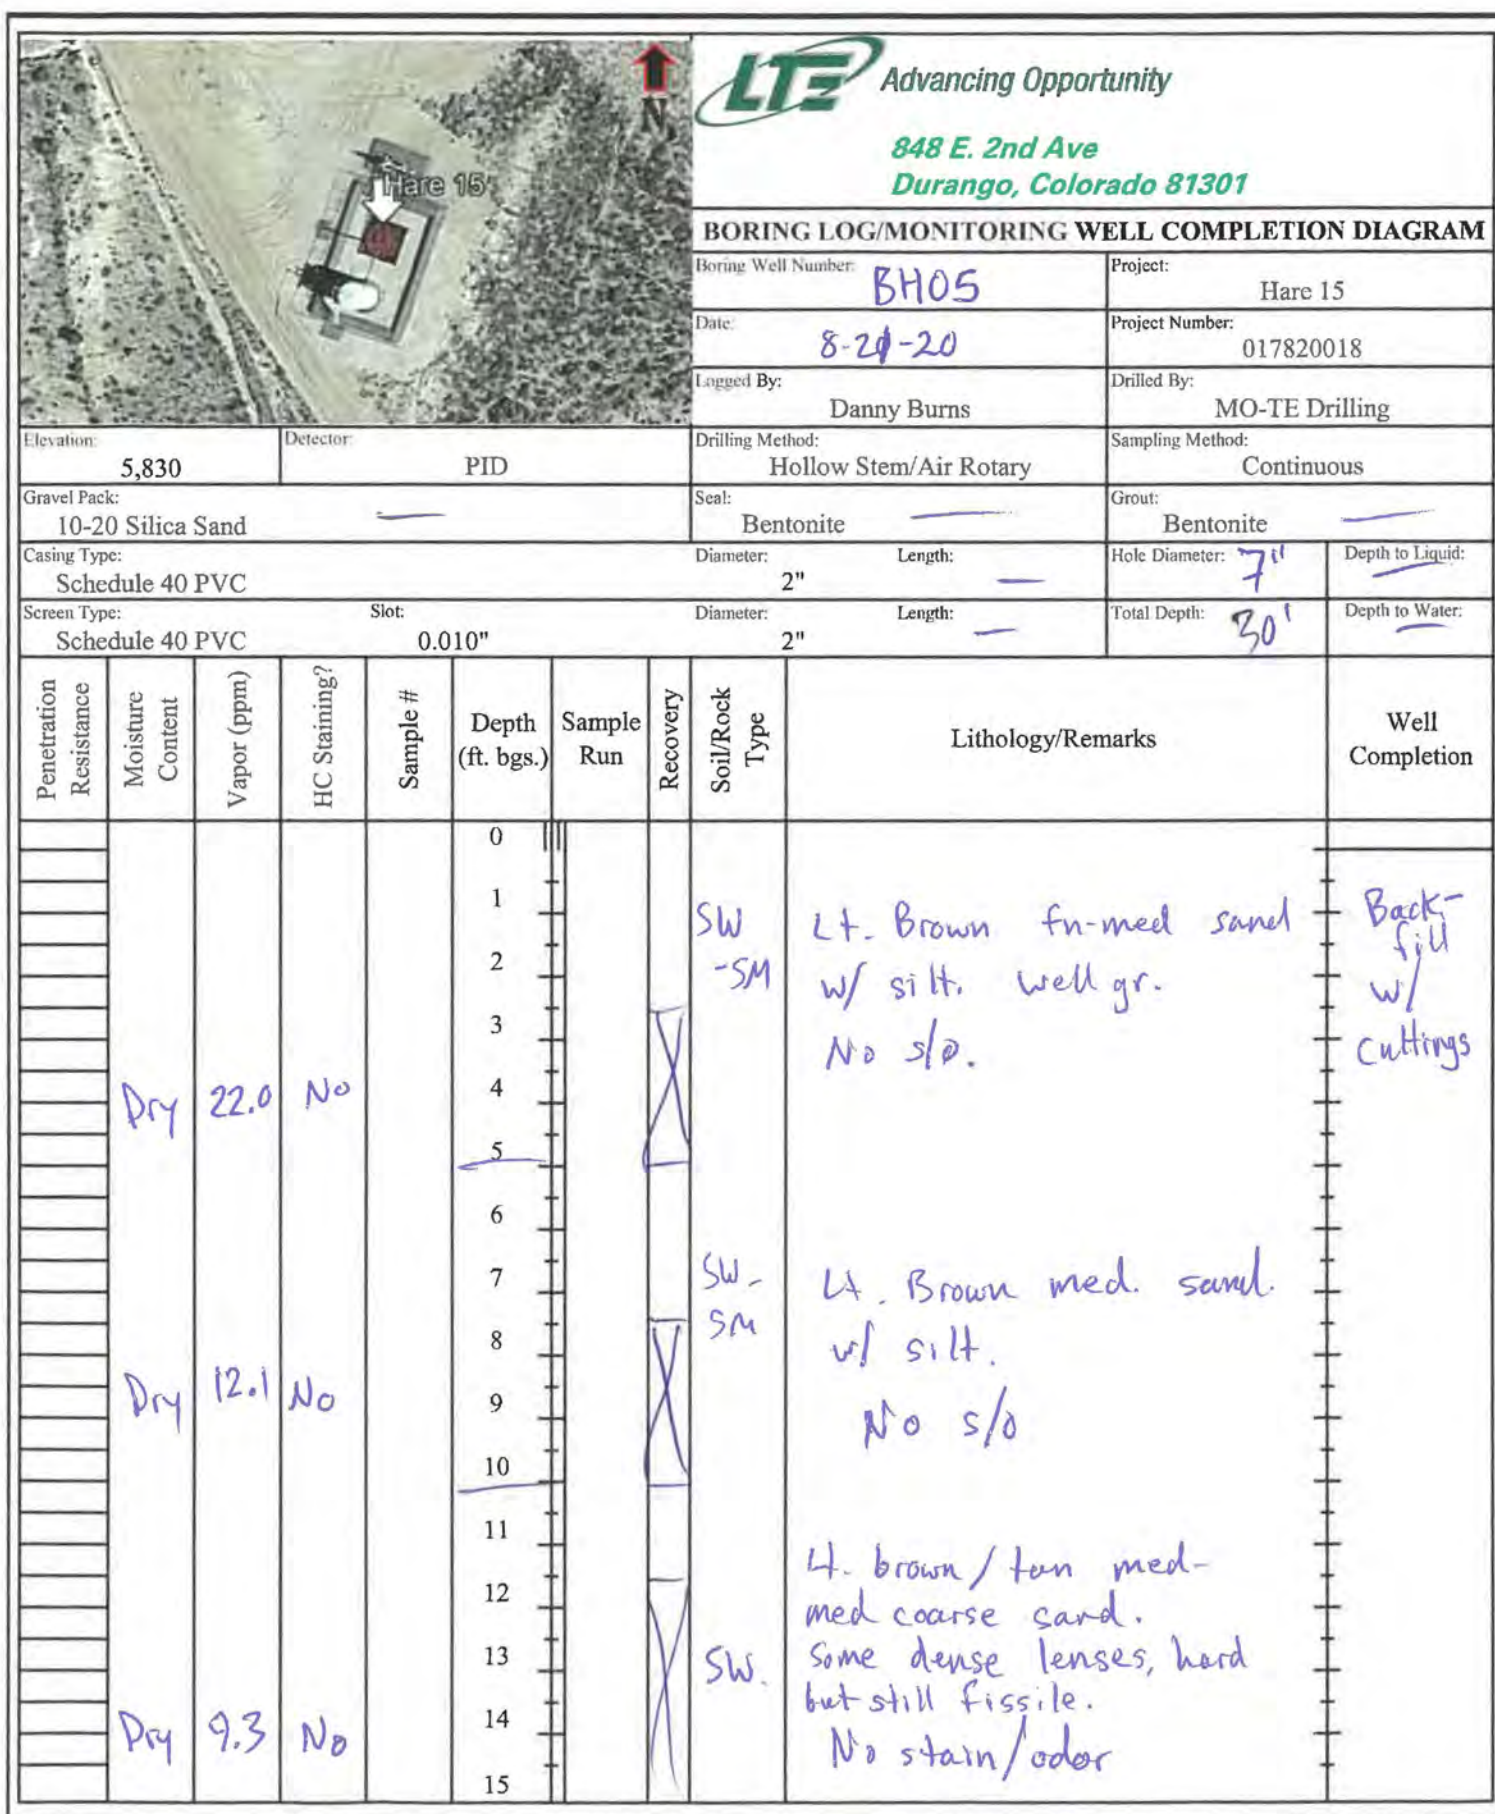 Hare 15
N
LTE Advancing Opportunity
848 E. 2nd Ave
Durango, Colorado 81301
BORING LOG/MONITORING WELL COMPLETION DIAGRAM
Boring Well Number: BH05
Project: Hare 15
Date: 8-21-20
Project Number: 017820018
Logged By: Danny Burns
Drilled By: MO-TE Drilling
Elevation: 5,830
Detector: PID
Drilling Method: Hollow Stem/Air Rotary
Sampling Method: Continuous
Gravel Pack: 10-20 Silica Sand —
Seal: Bentonite —
Grout: Bentonite —
Casing Type: Schedule 40 PVC
Diameter: 2"
Length: —
Hole Diameter: 7"
Depth to Liquid: —
Screen Type: Schedule 40 PVC
Slot: 0.010"
Diameter: 2"
Length: —
Total Depth: 30'
Depth to Water: —
Penetration Resistance
Moisture Content
Vapor (ppm)
HC Staining?
Sample #
Depth (ft. bgs.)
Sample Run
Recovery
Soil/Rock Type
Lithology/Remarks
Well Completion
0
1
SW Lt. Brown fn-med sand Back-
fill
2
-SM w/ silt. well gr. w/
3
No s/o. cuttings
4
Dry 22.0 No
5
6
7
SW- Lt. Brown med. sand.
8
SM w/ silt.
Dry 12.1 No
9
No s/o
10
11
Lt. brown/tan med-
12
med coarse sand.
13
SW. Some dense lenses, hard
but still fissile.
14
Dry 9.3 No No stain/odor
15